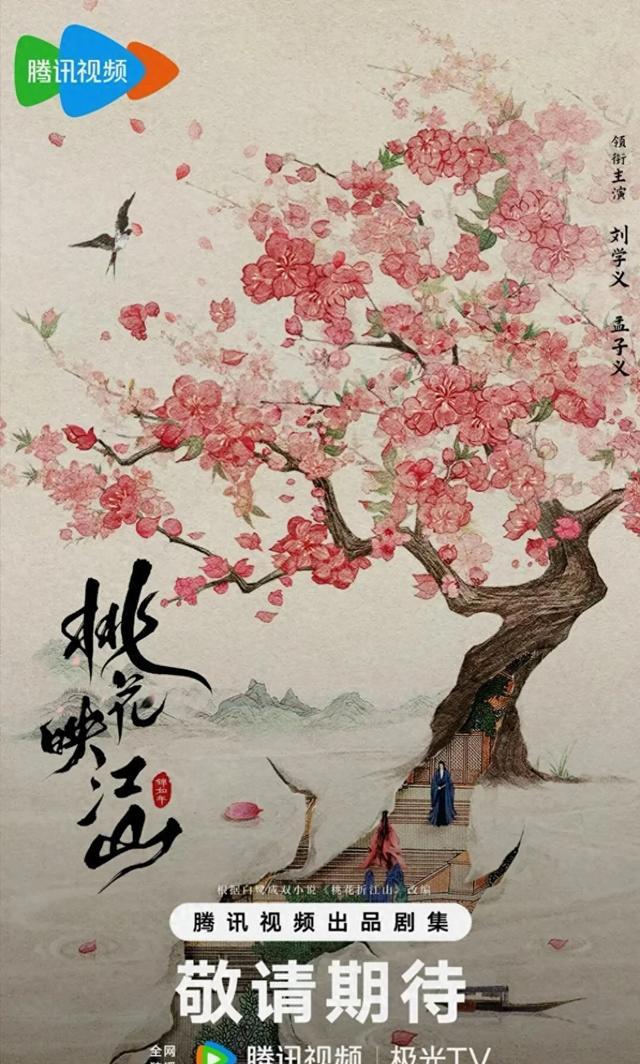 腾讯视频
领衔主演
刘学义
孟子义
桃花映江山
锦如年
根据白鹭成双小说《桃花折江山》改编
腾讯视频出品剧集
敬请期待
全网
腾讯视频 | 极光TV